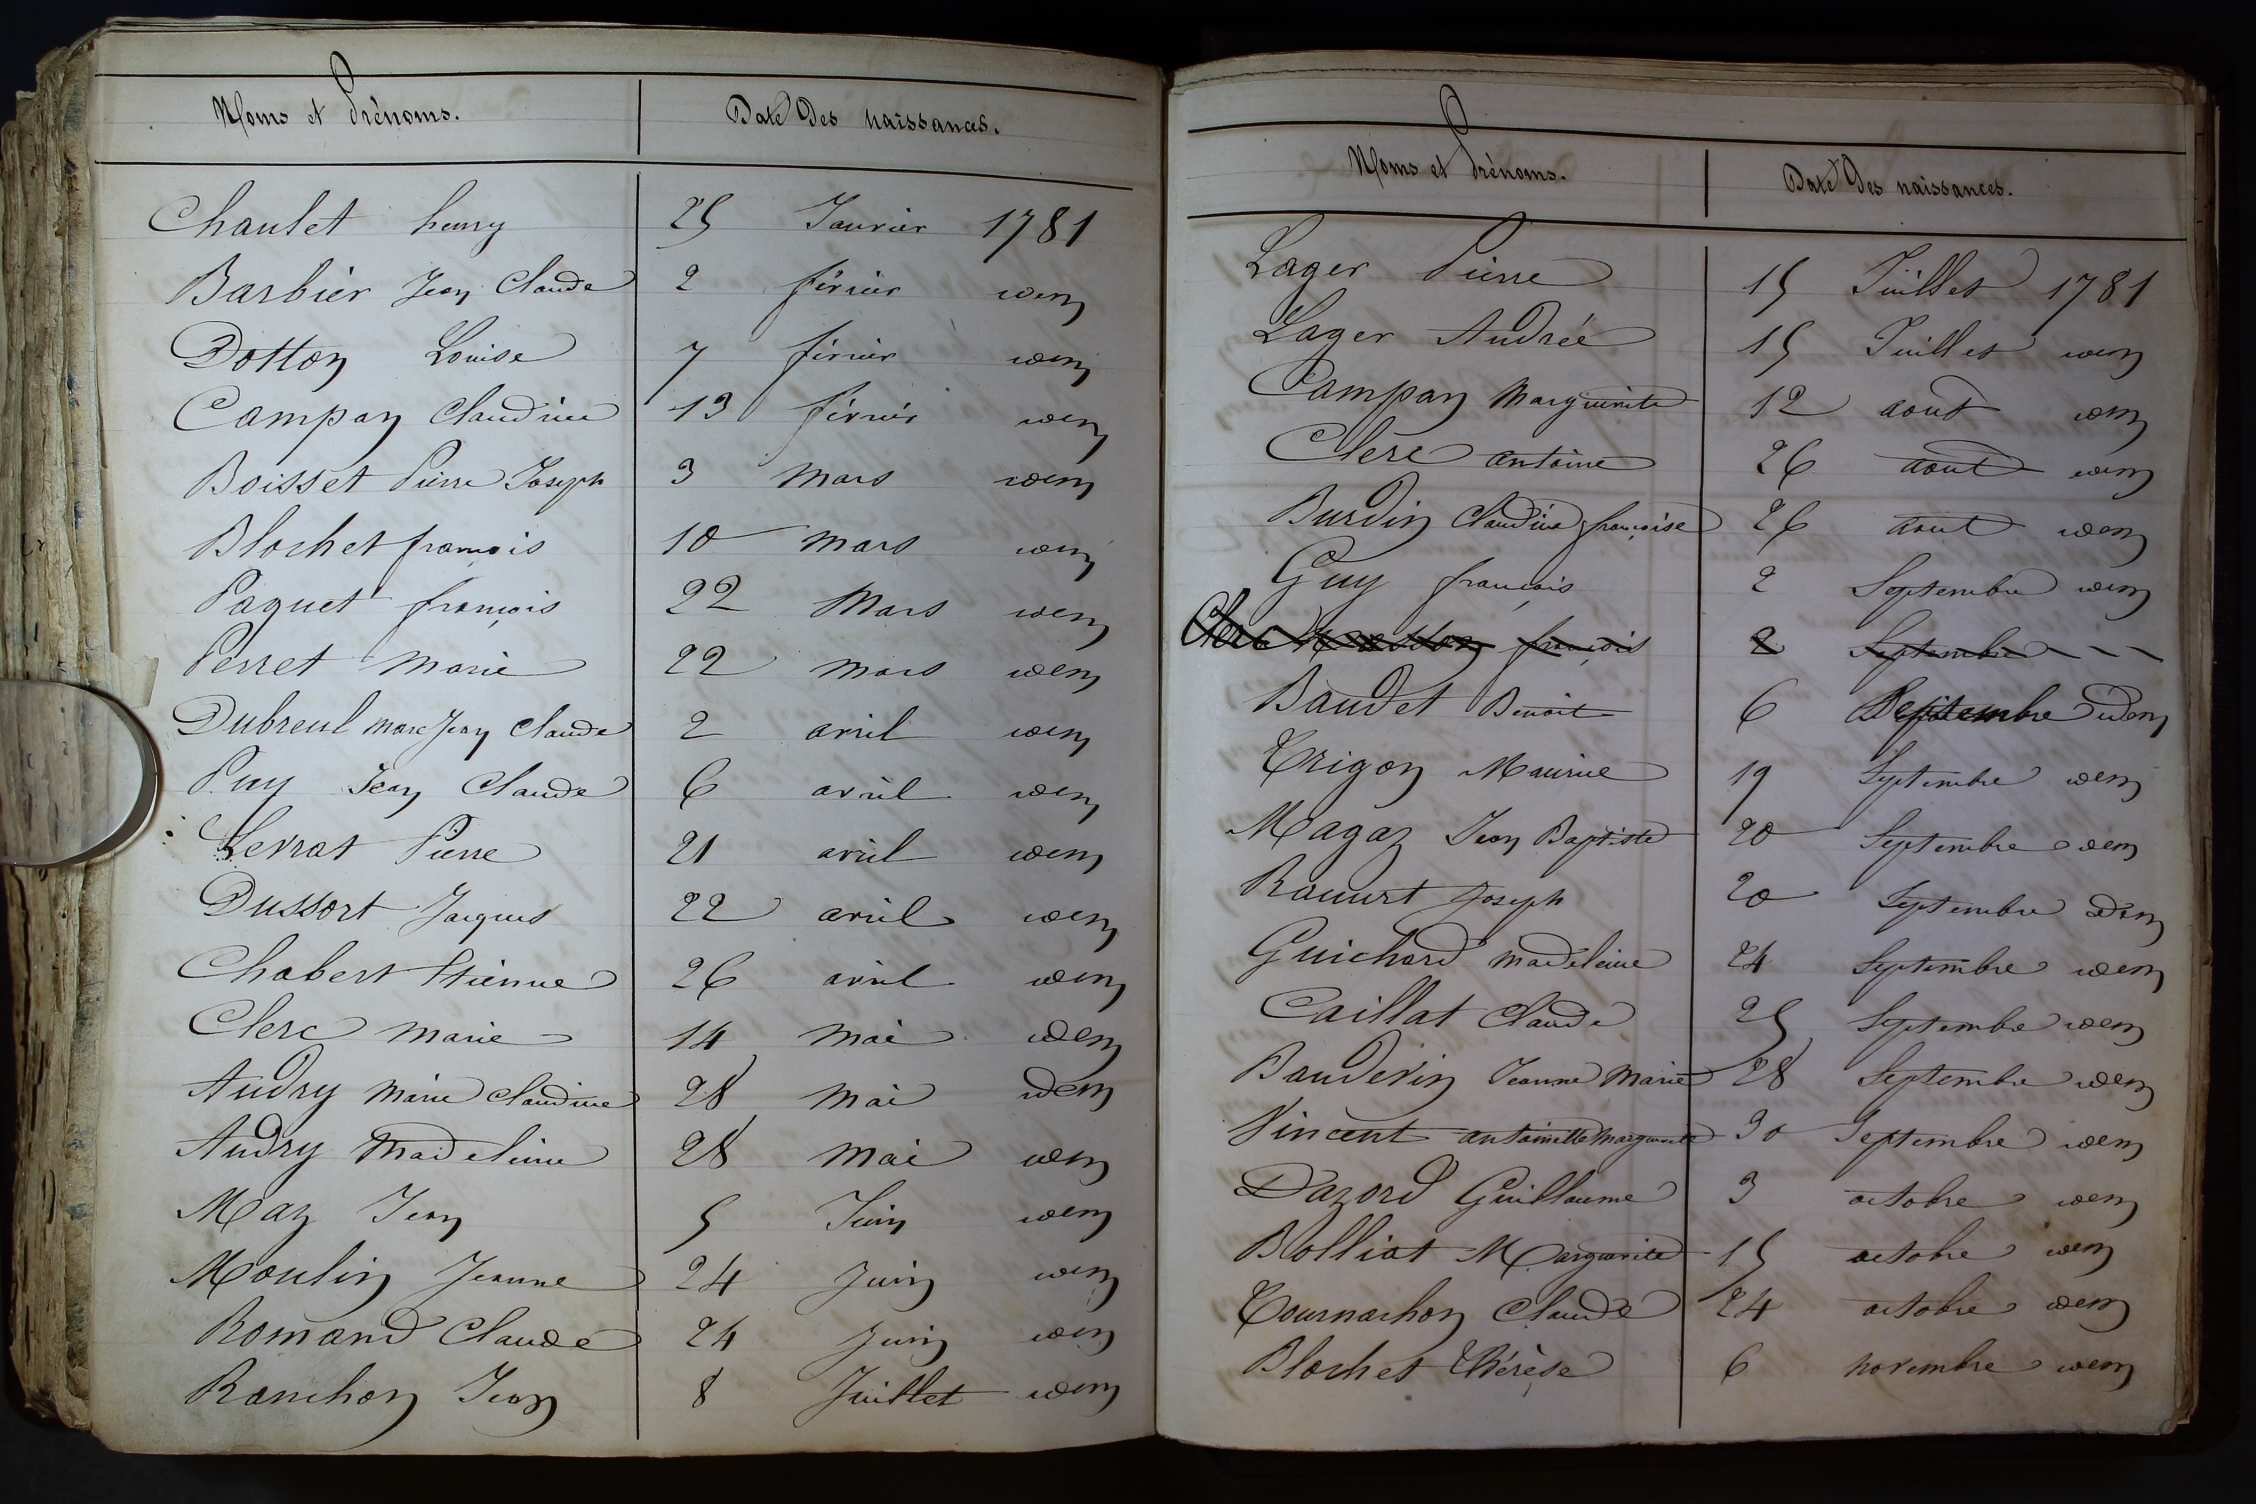 Noms et Prénoms. Date Des naissances.
Chaulet henry 25 Janvier 1781
Barbier Jean Claude 2 février idem
Dotton Louise 7 février idem
Campan Claudine 13 février idem
Boisset Pierre Joseph 3 Mars idem
Blochet françois 10 Mars idem
Paquet françois 22 Mars idem
Perret Marie 22 Mars idem
Dubreul Marc Jean Claude 2 avril idem
Puy Jean Claude 6 avril idem
Levrat Pierre 21 avril idem
Dussort Jacques 22 avril idem
Chabert Etienne 26 avril idem
Clerc Marie 14 Mai idem
Audry Marie Claudine 28 Mai idem
Audry Madeleine 28 Mai idem
Maz Jean 5 Juin idem
Moulin Jeanne 24 Juin idem
Romand Claude 24 Juin idem
Ranchon Jean 8 Juillet idem
Noms et Prénoms. Date Des naissances.
Lager Pierre 15 Juillet 1781
Lager Andrée 15 Juillet idem
Campan Marguerite 12 aout idem
Clerc antoine 26 aout idem
Burdin Claudine françoise 26 aout idem
Guy françois 2 Septembre idem
Clerc françois 2 Septembre
Baudet Benoit 6 Septembre idem
Trigon Maurice 19 Septembre idem
Magaz Jean Baptiste 20 Septembre idem
Joseph 20 Septembre idem
Guichard Madeleine 24 Septembre idem
Caillat Claude 25 Septembre idem
Bauderin Jeanne Marie 28 Septembre idem
Vincent antoinette Marguerite 30 Septembre idem
Dazord Guillaume 3 octobre idem
Rolliat Marguerite 15 octobre idem
Tournachon Claude 24 octobre idem
Blochet Thérèse 6 novembre idem